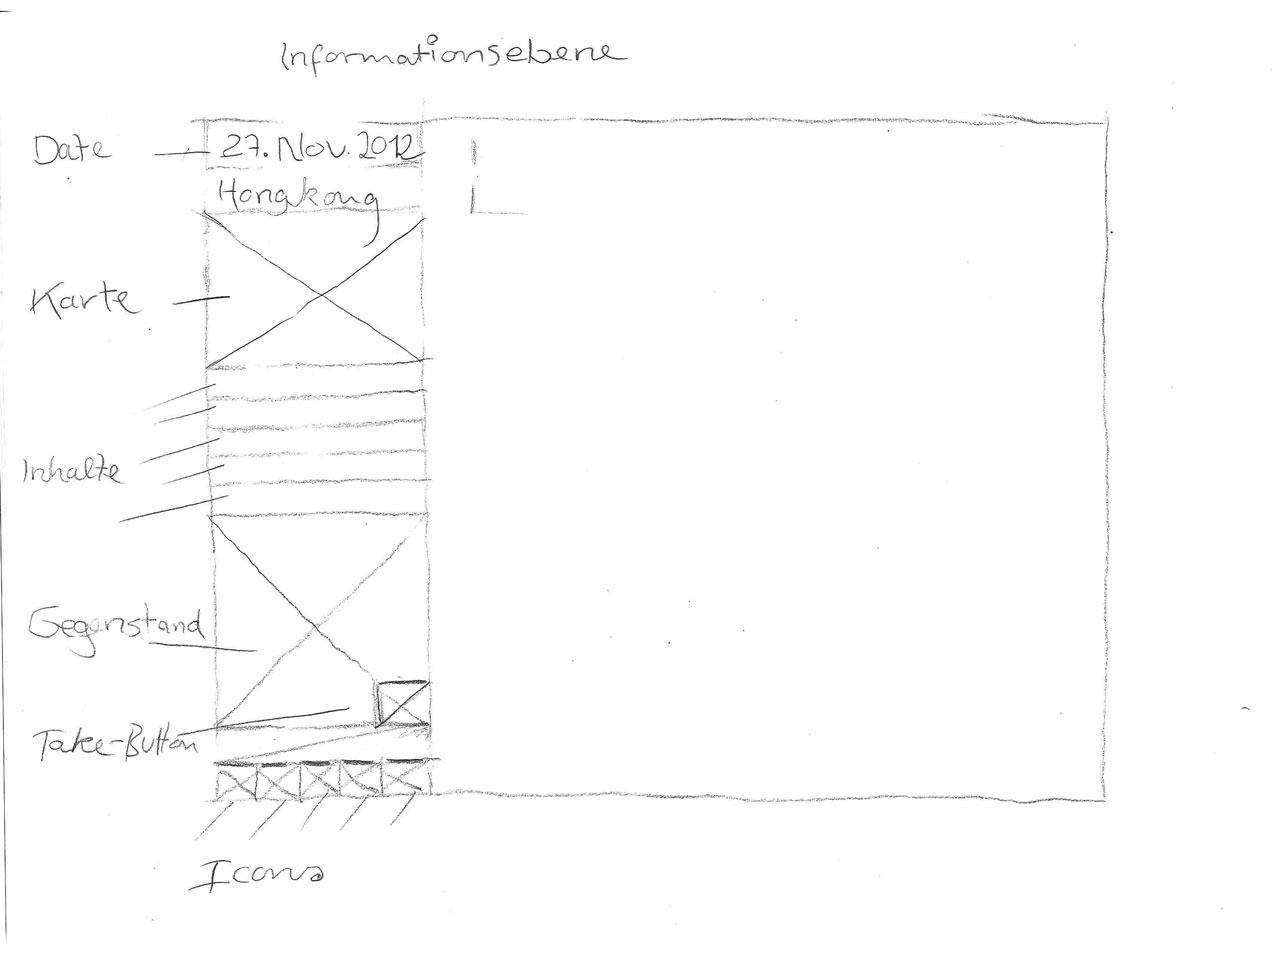 Informationsebene
Date
27. Nov. 2012
Hongkong
Karte
Inhalte
Gegenstand
Take-Button
Icons